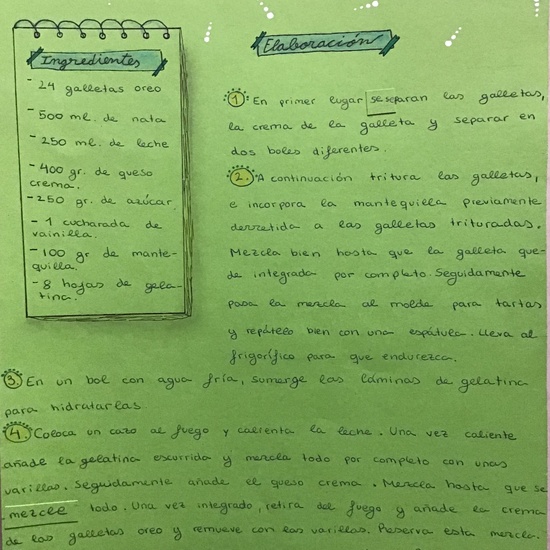 Ingredientes
- 24 galletas oreo
- 500 ml. de nata
- 250 ml. de leche
- 400 gr. de queso
crema.
- 250 gr. de azúcar.
- 1 cucharada de
vainilla.
- 100 gr de mante-
quilla.
- 8 hojas de gela-
tina.
Elaboración
1. En primer lugar se separan las galletas,
la crema de la galleta y separar en
dos boles diferentes.
2. A continuación tritura las galletas,
e incorpora la mantequilla previamente
derretida a las galletas trituradas.
Mezcla bien hasta que la galleta que-
de integrada por completo. Seguidamente
pasa la mezcla al molde para tartas
y repártelo bien con una espátula. Lleva al
frigorífico para que endurezca.
3. En un bol con agua fría, sumerge las láminas de gelatina
para hidratarlas
4. Coloca un cazo al fuego y calienta la leche. Una vez caliente
añade la gelatina escurrida y mezcla todo por completo con unas
varillas. Seguidamente añade el queso crema. Mezcla hasta que se
mezcle todo. Una vez integrado, retira del fuego y añade la crema
de las galletas oreo y remueve con las varillas. Reserva esta mezcla.